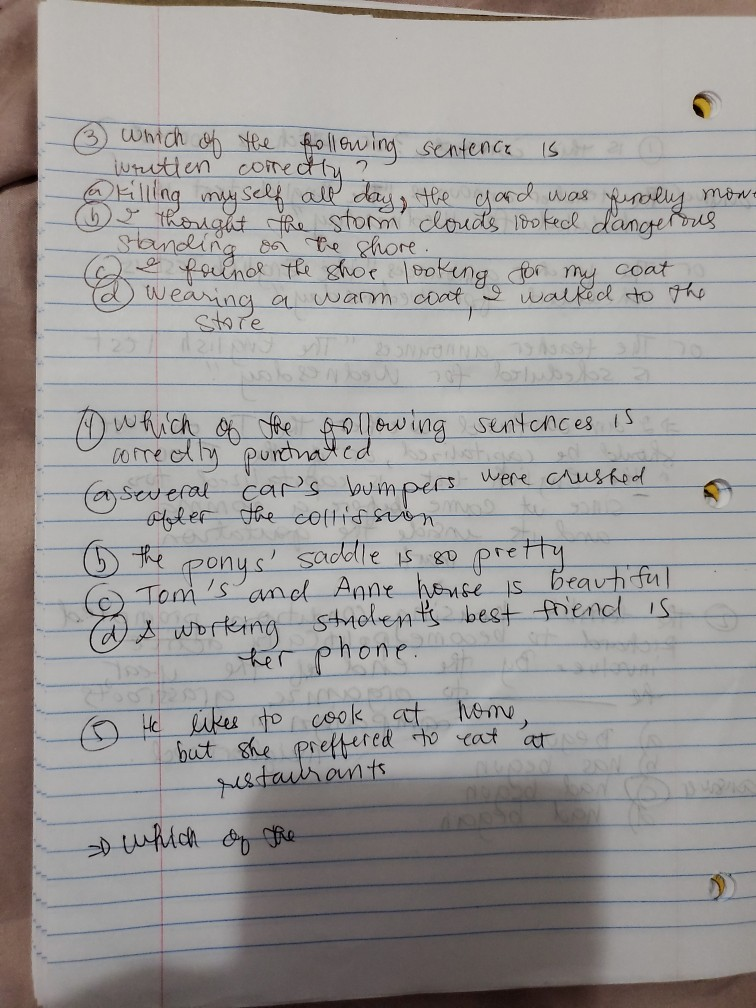 ③ which of the following sentence is
written correctly?
ⓐ Killing myself all day, the yard was finally mow
ⓑ I thought the storm clouds looked dangerous
standing on the shore.
ⓒ I found the shoe looking for my coat
ⓓ wearing a warm coat, I walked to the
store
④ which of the following sentences is
correctly punctnated
ⓐ several car's bumpers were crushed
after the collission
ⓑ the ponys' saddle is so pretty
ⓒ Tom's and Anne house is beautiful
ⓓ A working student's best friend is
her phone.
⑤ He likes to cook at home,
but she preffered to eat at
restaurants
⇒ which of the